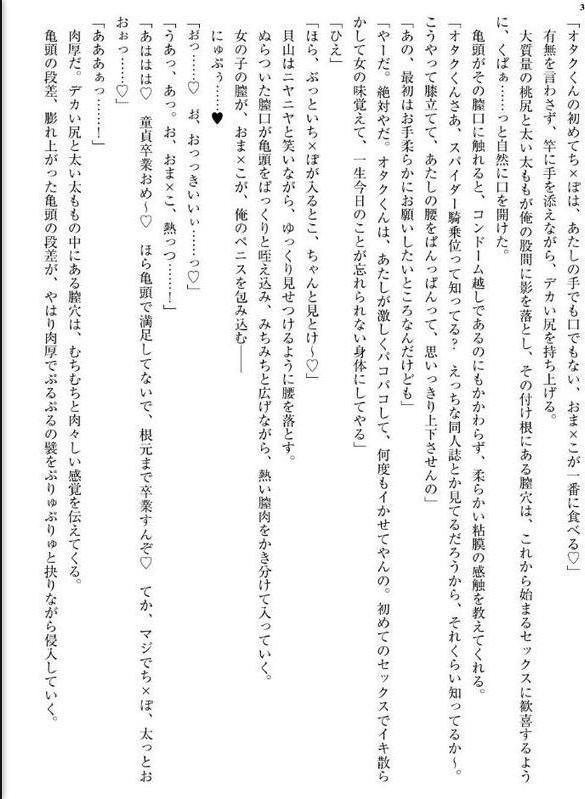 3
「オタクくんの初めてち×ぽは、あたしの手でも口でもない、おま×こが一番に食べる♡」
有無を言わさず、竿に手を添えながら、デカい尻を持ち上げる。
大質量の桃尻と太い太ももが俺の股間に影を落とし、その付け根にある膣穴は、これから始まるセックスに歓喜するよう
に、くぱぁ……っと自然に口を開けた。
亀頭がその膣口に触れると、コンドーム越しであるのにもかかわらず、柔らかい粘膜の感触を教えてくれる。
「オタクくんさあ、スパイダー騎乗位って知ってる？　えっちな同人誌とか見てるだろうから、それくらい知ってるか～。
こうやって膝立てて、あたしの腰をぱんっぱんって、思いっきり上下させんの」
「あの、最初はお手柔らかにお願いしたいところなんだけども」
「やーだ。絶対やだ。オタクくんは、あたしが激しくパコパコして、何度もイかせてやんの。初めてのセックスでイキ散ら
かして女の味覚えて、一生今日のことが忘れられない身体にしてやる」
「ひえ」
「ほら、ぶっといち×ぽが入るとこ、ちゃんと見とけ～♡」
貝山はニヤニヤと笑いながら、ゆっくり見せつけるように腰を落とす。
ぬらついた膣口が亀頭をぱっくりと咥え込み、みちみちと広げながら、熱い膣肉をかき分けて入っていく。
女の子の膣が、おま×こが、俺のペニスを包み込む――
にゅぷぅ……♥
「おっ……♡　お、おっっきいいぃ……っ♡」
「うあっ、あっ。お、おま×こ、熱っつ……！」
「あははは♡　童貞卒業おめ～♡　ほら亀頭で満足してないで、根元まで卒業すんぞ♡　てか、マジでち×ぽ、太っとお
おぉっ……♡」
「あああぁっ……！」
肉厚だ。デカい尻と太い太ももの中にある膣穴は、むちむちと肉々しい感覚を伝えてくる。
亀頭の段差、膨れ上がった亀頭の段差が、やはり肉厚でぷるぷるの襞をぷりゅぷりゅと抉りながら侵入していく。